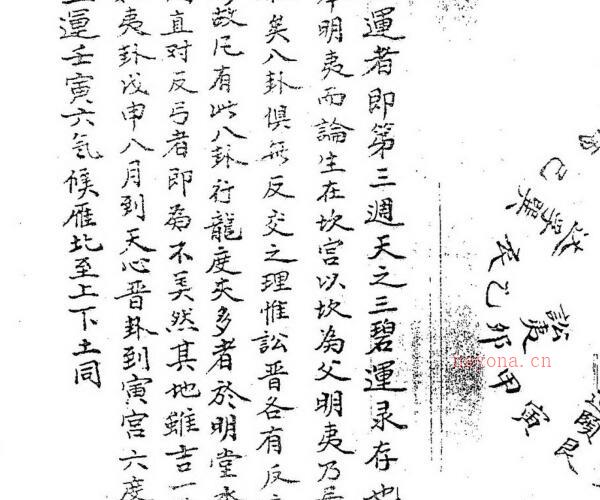 運者即第三週天之三碧運录存也
明夷而論生在坎宮以坎為父明夷乃
矣八卦俱無反交之理惟訟晉各有反
故凡有此八卦行龍度夾多者於明堂
直对反弓者即為不美然其地雖吉一
夷卦戊申八月到天心晉卦到寅宮六度
運壬寅六氣候雁北至上下土同
巳
巽
訟
夷
卯
甲
寅
艮
頤
nayona.cn